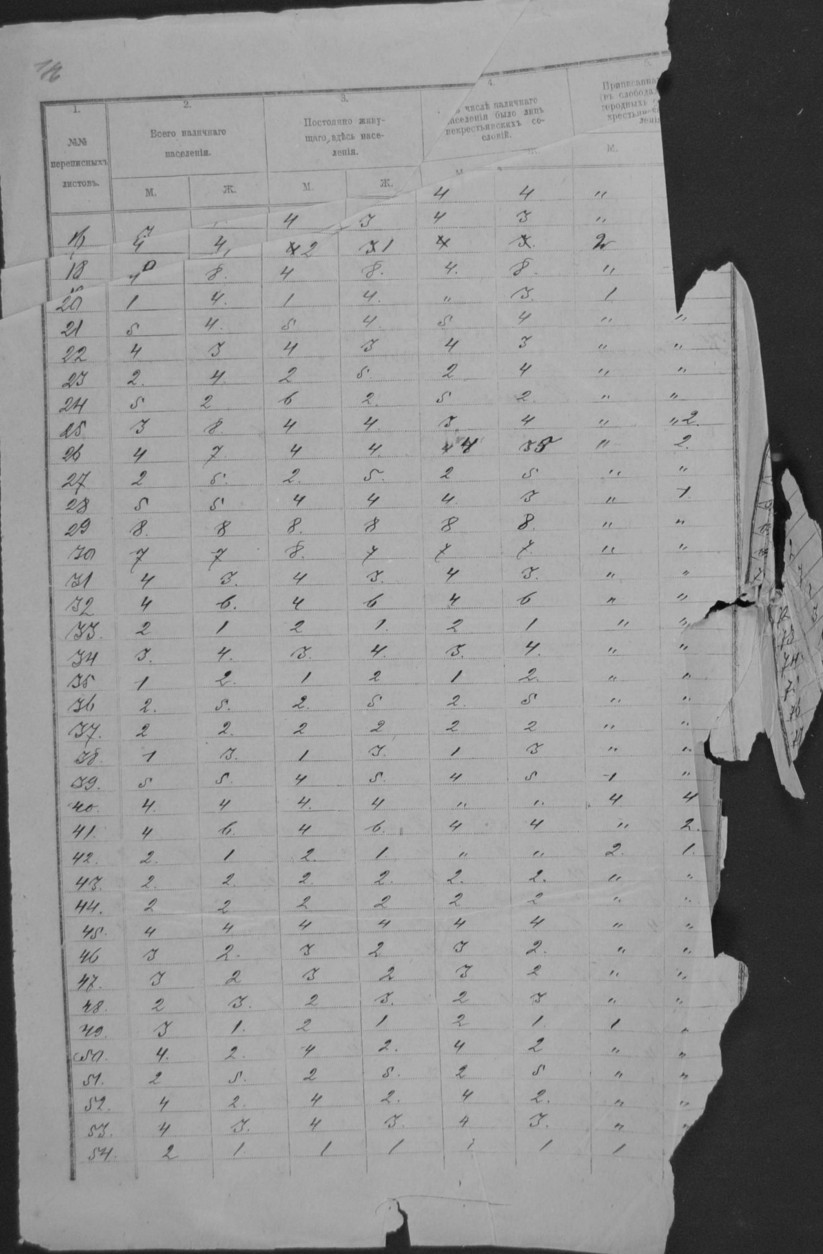 1. 2. 3. 4.
№№ переписныхъ листовъ. Всего наличнаго населенія. Постоянно живущаго здѣсь населенія. числѣ наличнаго населенія было лицъ некрестьянскихъ сословій.
М. Ж. М. Ж. М.
4 4 "
4 3 4 3 "
4 4,
18 8. 4 8. 4. 8. "
20 1 4. 1 4. " 3. 1
21 5 4. 5 4 5 4 " "
22 4 3 4 3 4 3 " "
23 2. 4. 2 5 2 4 " "
24 5 2 6 2. 5 2. " "
25. 3 8. 4 4. 3. 4 " "2.
26 4 7. 4 4. 4 5 " 2.
27 2 5. 2. 5. 2 5 " "
28 5 5 4 4 4. 3 " 1.
29 8. 8 8. 8 8 8. " "
30 7 7 8. 7 7 7. " "
31 4 3. 4 3. 4 3. " "
32 4 6. 4 6 4 6 " "
33. 2 1 2 1. 2 1 " "
34 3. 4. 3. 4. 3. 4. " "
35 1 2. 1 2 1 2. " "
36 2. 5. 2. 5 2. 5 " "
37. 2 2. 2 2 2 2 " "
38. 1 3. 1 3. 1 3 " "
39. 5 5. 4 5. 4 5 1 "
40. 4. 4 4. 4 " " 4 4
41. 4 6. 4 6. 4 4 " 2.
42. 2. 1 2. 1. " " 2. 1.
43. 2. 2. 2. 2. 2. 2. " "
44. 2 2 2 2 2 2 " "
45. 4 4 4 4 4 4 " "
46 3 2. 3 2 3 2. " "
47. 3 2 3 2 3 2 " "
48. 2 3. 2 3. 2 3 " "
49. 3 1. 2 1 2 1. 1 "
50. 4. 2. 4 2. 4 2 " "
51. 2 5. 2 5. 2 5 " "
52. 4 2. 4 2. 4 2. " "
53. 4 3. 4 3. 4 3. " "
54. 2 1 1 1 1 1 1